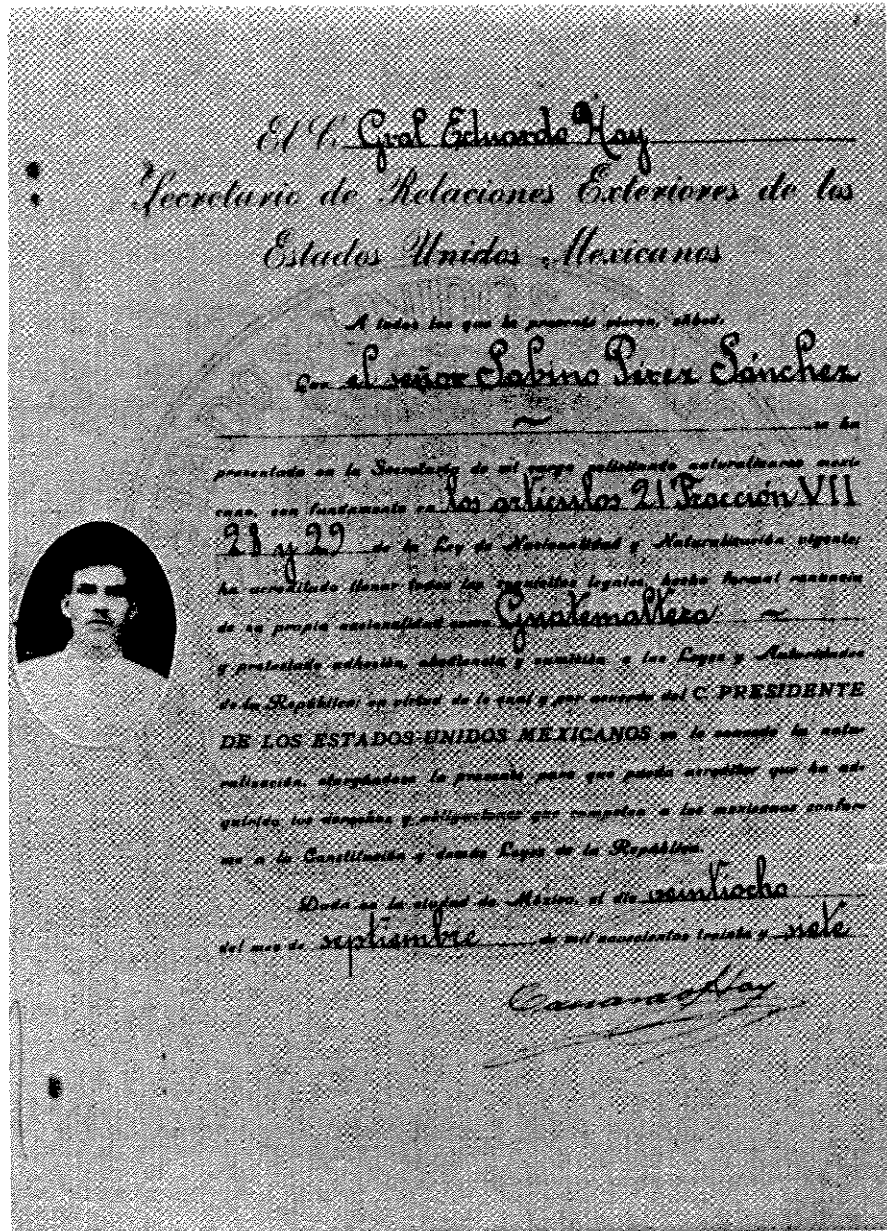 El C. Gral Eduardo Hay
Secretario de Relaciones Exteriores de los
Estados Unidos Mexicanos
A todos los que la presente vieren, sabed:
Que el señor Sabino Pérez Sánchez
~ se ha
presentado en la Secretaría de mi cargo solicitando naturalizarse mexi-
cano, con fundamento en los artículos 21 Fracción VII
28 y 29 de la Ley de Nacionalidad y Naturalización vigente;
ha acreditado llenar todos los requisitos legales, hecho formal renuncia
de su propia nacionalidad como Guatemalteco ~
y protestado adhesión, obediencia y sumisión a las Leyes y Autoridades
de la República; en virtud de lo cual y por acuerdo del C. PRESIDENTE
DE LOS ESTADOS UNIDOS MEXICANOS se le concede la natu-
ralización, otorgándose la presente para que pueda acreditar que ha ad-
quirido los derechos y obligaciones que competen a los mexicanos confor-
me a la Constitución y demás Leyes de la República.
Dada en la ciudad de México, el día veintiocho
del mes de septiembre de mil novecientos treinta y siete
Eduardo Hay